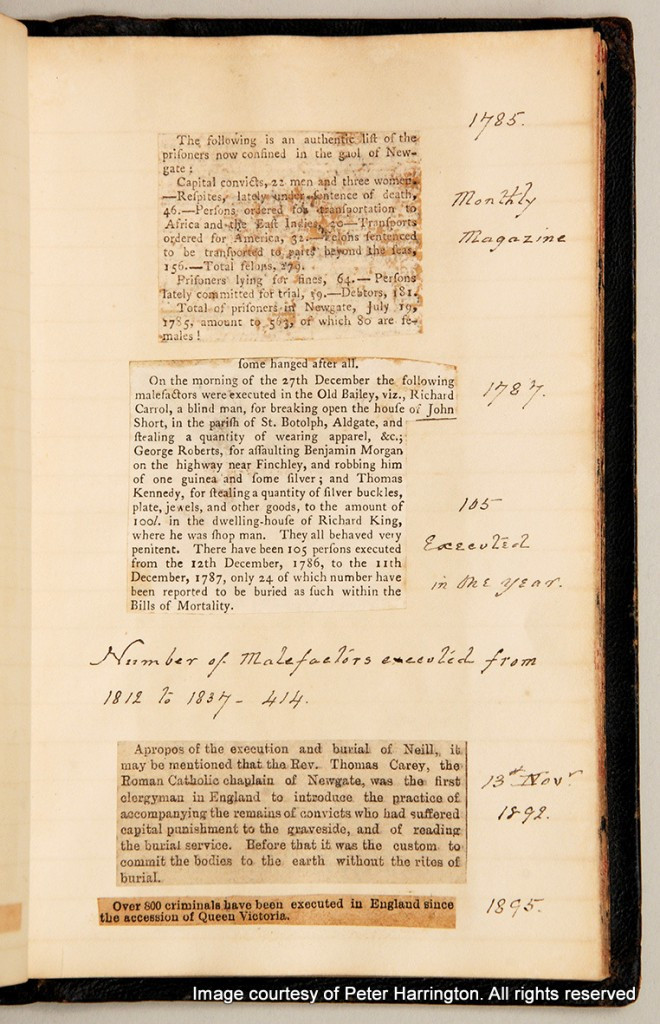 1785.
The following is an authentic liſt of the
priſoners now confined in the gaol of New-
gate :
Capital convicts, 22 men and three women.
—Reſpites, lately under ſentence of death,
46.—Perſons ordered for tranſportation to
Africa and the Eaſt Indies, 20—Tranſports
ordered for America, 32.—Felons ſentenced
to be tranſported to parts beyond the ſeas,
156.—Total felons, 279.
Priſoners lying for fines, 64.—Perſons
lately committed for trial, 19.—Debtors, 181.
Total of priſoners in Newgate, July 19,
1785, amount to 563, of which 80 are fe-
males !
Monthly
Magazine
ſome hanged after all.
On the morning of the 27th December the following
malefactors were executed in the Old Bailey, viz., Richard
Carrol, a blind man, for breaking open the houſe of John
Short, in the pariſh of St. Botolph, Aldgate, and
ſtealing a quantity of wearing apparel, &c.;
George Roberts, for aſſaulting Benjamin Morgan
on the highway near Finchley, and robbing him
of one guinea and ſome ſilver ; and Thomas
Kennedy, for ſtealing a quantity of ſilver buckles,
plate, jewels, and other goods, to the amount of
100l. in the dwelling-houſe of Richard King,
where he was ſhop man. They all behaved very
penitent. There have been 105 perſons executed
from the 12th December, 1786, to the 11th
December, 1787, only 24 of which number have
been reported to be buried as ſuch within the
Bills of Mortality.
1787.
105
Executed
in the year.
Number of Malefactors executed from
1812 to 1837 - 414.
Apropos of the execution and burial of Neill, it
may be mentioned that the Rev. Thomas Carey, the
Roman Catholic chaplain of Newgate, was the first
clergyman in England to introduce the practice of
accompanying the remains of convicts who had suffered
capital punishment to the graveside, and of reading
the burial service. Before that it was the custom to
commit the bodies to the earth without the rites of
burial.
Novr
1892.
Over 800 criminals have been executed in England since
the accession of Queen Victoria.
1895.
Image courtesy of Peter Harrington. All rights reserved